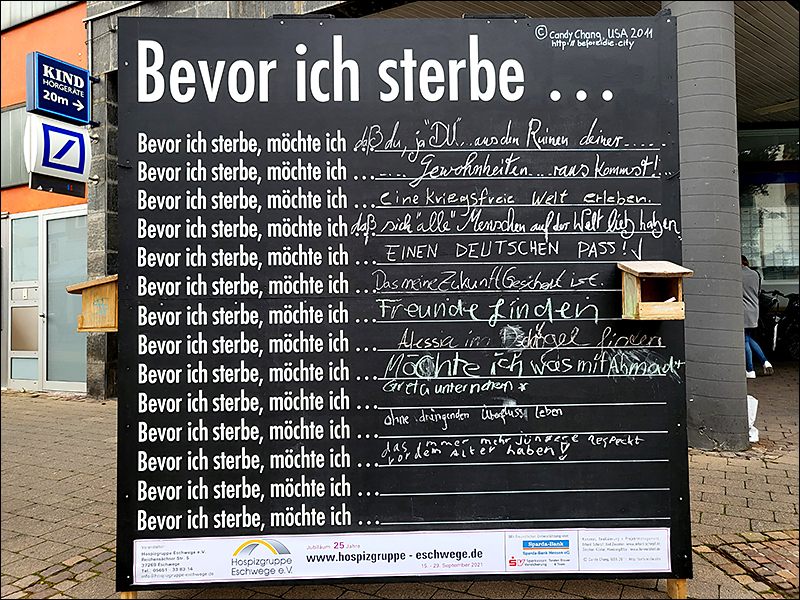 Bevor ich sterbe ...
© Candy Chang, USA 2011
http:// beforeIdie.city
KIND
HÖRGERÄTE
20m →
Bevor ich sterbe, möchte ich daß du, ja "DU"... aus den Ruinen deiner......
Bevor ich sterbe, möchte ich ...... Gewohnheiten.... raus kommst!..
Bevor ich sterbe, möchte ich ... eine kriegsfreie Welt erleben.
Bevor ich sterbe, möchte ich daß sich "alle" Menschen auf der Welt lieb haben.
Bevor ich sterbe, möchte ich ... EINEN DEUTSCHEN PASS!
Bevor ich sterbe, möchte ich ... Das meine Zukunft Geschenk ist.
Bevor ich sterbe, möchte ich ... Freunde finden
Bevor ich sterbe, möchte ich ... Alessia im finden
Bevor ich sterbe, möchte ich ... Möchte ich was mit Ahmad +
Greta unternehmen *
Bevor ich sterbe, möchte ich ... ohne drängenden leben
Bevor ich sterbe, möchte ich ... das immer mehr jüngere respeckt
vor dem Alter haben!
Bevor ich sterbe, möchte ich ...
Bevor ich sterbe, möchte ich ...
Bevor ich sterbe, möchte ich ...
Veranstalter:
Hospizgruppe Eschwege e.V.
37269 Eschwege
Hospizgruppe
Eschwege e.V.
Jubiläum 25 Jahre
www.hospizgruppe - eschwege.de
15. - 29. September 2021
Sparda-Bank
Sparda-Bank Hessen eG